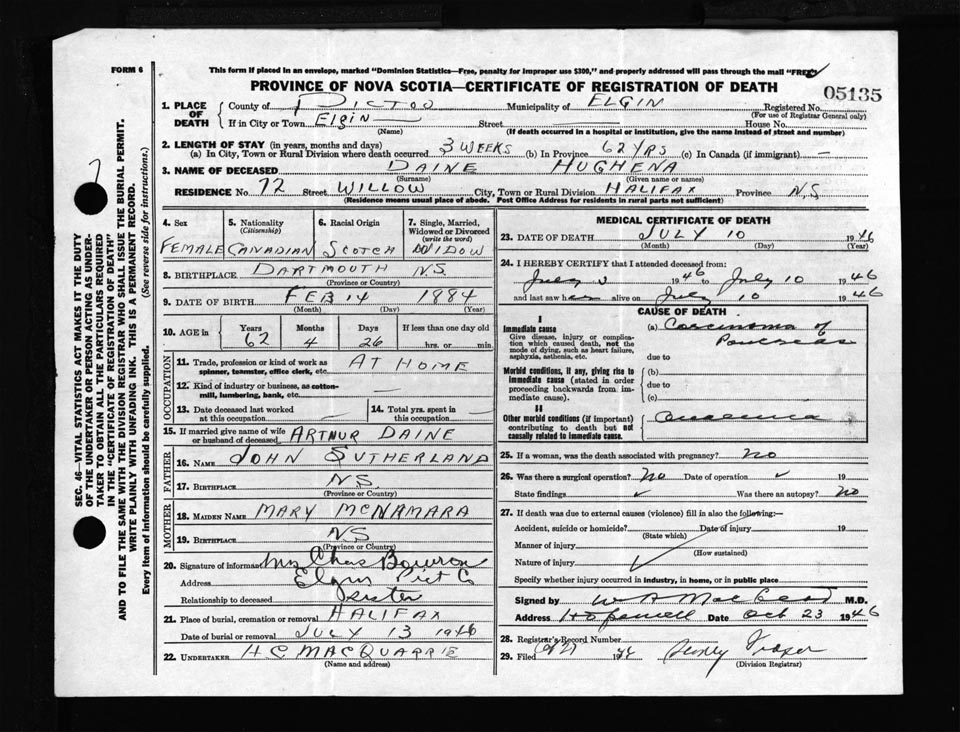 FORM 6
This form if placed in an envelope, marked "Dominion Statistics—Free, penalty for improper use $300," and properly addressed will pass through the mail "FREE"
PROVINCE OF NOVA SCOTIA—CERTIFICATE OF REGISTRATION OF DEATH
05135
1. PLACE OF DEATH { County of PICTOU Municipality of ELGIN Registered No.
(For use of Registrar General only)
If in City or Town Elgin Street House No.
(Name) (If death occurred in a hospital or institution, give the name instead of street and number)
2. LENGTH OF STAY (in years, months and days)
(a) In City, Town or Rural Division where death occurred 3 WEEKS (b) In Province 62 YRS (c) In Canada (if immigrant) —
3. NAME OF DECEASED DAINE HUGHENA
(Surname) (Given name or names)
RESIDENCE No. 72 Street WILLOW City, Town or Rural Division HALIFAX Province N.S
(Residence means usual place of abode. Post Office Address for residents in rural parts not sufficient)
SEC. 46—VITAL STATISTICS ACT MAKES IT THE DUTY
OF THE UNDERTAKER OR PERSON ACTING AS UNDER-
TAKER TO OBTAIN ALL THE PARTICULARS REQUIRED
IN THE "CERTIFICATE OF REGISTRATION OF DEATH"
AND TO FILE THE SAME WITH THE DIVISION REGISTRAR WHO SHALL ISSUE THE BURIAL PERMIT.
WRITE PLAINLY WITH UNFADING INK. THIS IS A PERMANENT RECORD.
Every item of information should be carefully supplied. (See reverse side for instructions.)
4. Sex
FEMALE
5. Nationality
(Citizenship)
CANADIAN
6. Racial Origin
SCOTCH
7. Single, Married, Widowed or Divorced
(write the word)
WIDOW
8. BIRTHPLACE DARTMOUTH N.S.
(Province or Country)
9. DATE OF BIRTH FEB 14 1884
(Month) (Day) (Year)
10. AGE in { Years 62 Months 4 Days 26 If less than one day old
hrs. or min.
OCCUPATION
11. Trade, profession or kind of work as AT HOME
spinner, teamster, office clerk, etc.
12. Kind of industry or business, as cotton- —
mill, lumbering, bank, etc.
13. Date deceased last worked
at this occupation —
14. Total yrs. spent in
this occupation —
15. If married give name of wife
or husband of deceased ARTHUR DAINE
FATHER
16. NAME JOHN SUTHERLAND
17. BIRTHPLACE N.S.
(Province or Country)
MOTHER
18. MAIDEN NAME MARY MCNAMARA
19. BIRTHPLACE N.S
(Province or Country)
20. Signature of informant Mrs Chas
Address Elgin Pict Co
Relationship to deceased sister
21. Place of burial, cremation or removal HALIFAX
Date of burial or removal JULY 13 1946
22. UNDERTAKER H C MACQUARRIE
(Name and address)
MEDICAL CERTIFICATE OF DEATH
23. DATE OF DEATH JULY 10 1946
(Month) (Day) (Year)
24. I HEREBY CERTIFY that I attended deceased from:
July 3 1946 to July 10 1946
and last saw her alive on July 10 1946
CAUSE OF DEATH
I
Immediate cause (a) Carcinoma of
Give disease, injury or complica- Pancreas
tion which caused death, not the
mode of dying, such as heart failure,
asphyxia, asthenia, etc. due to
Morbid conditions, if any, giving rise to (b)
immediate cause (stated in order due to
proceeding backwards from im-
mediate cause). (c)
II
Other morbid conditions (if important)
contributing to death but not
causally related to immediate cause.
25. If a woman, was the death associated with pregnancy? No
26. Was there a surgical operation? No Date of operation ✓ 19
State findings ✓ Was there an autopsy? No
27. If death was due to external causes (violence) fill in also the following:—
Accident, suicide or homicide? Date of injury 19
(State which)
Manner of injury
(How sustained)
Nature of injury
Specify whether injury occurred in industry, in home, or in public place
Signed by M.D.
Address Hopewell Date Oct 23 1946
28. Registrar's Record Number
29. Filed Fraser
(Division Registrar)